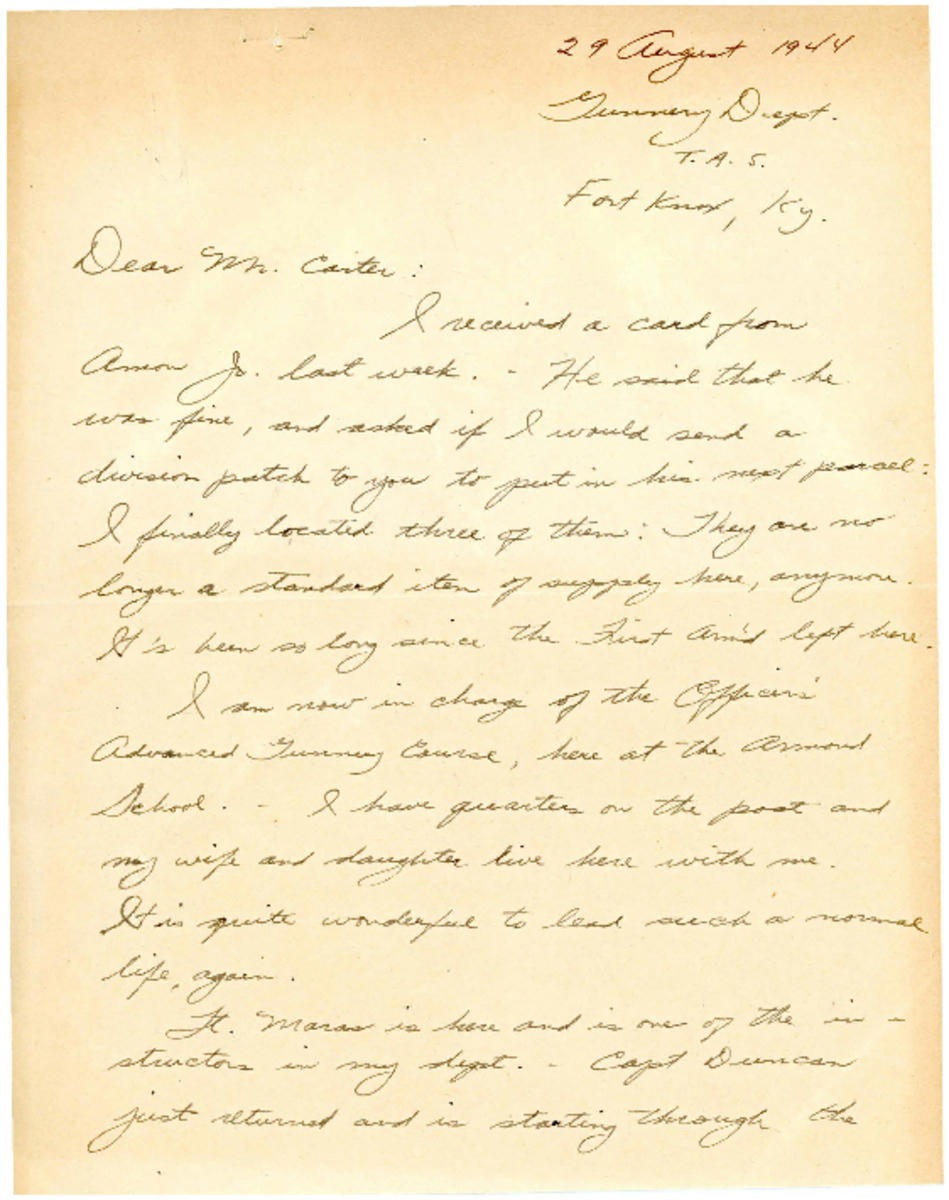 29 August 1944
Gunnery Dept.
T. A. S.
Fort Knox, Ky.
Dear Mr. Carter:
I received a card from
Amon Jr. last week. - He said that he
was fine, and asked if I would send a
division patch to you to put in his next parcel:
I finally located three of them: They are no
longer a standard item of supply here, anymore.
It's been so long since the First Arm'd left here.
I am now in charge of the Officers'
Advanced Gunnery Course, here at the Armored
School. - I have quarters on the post and
my wife and daughter live here with me.
It is quite wonderful to lead such a normal
life, again.
Lt. Maras is here and is one of the in-
structors in my dept. - Capt Duncan
just returned and is starting through the